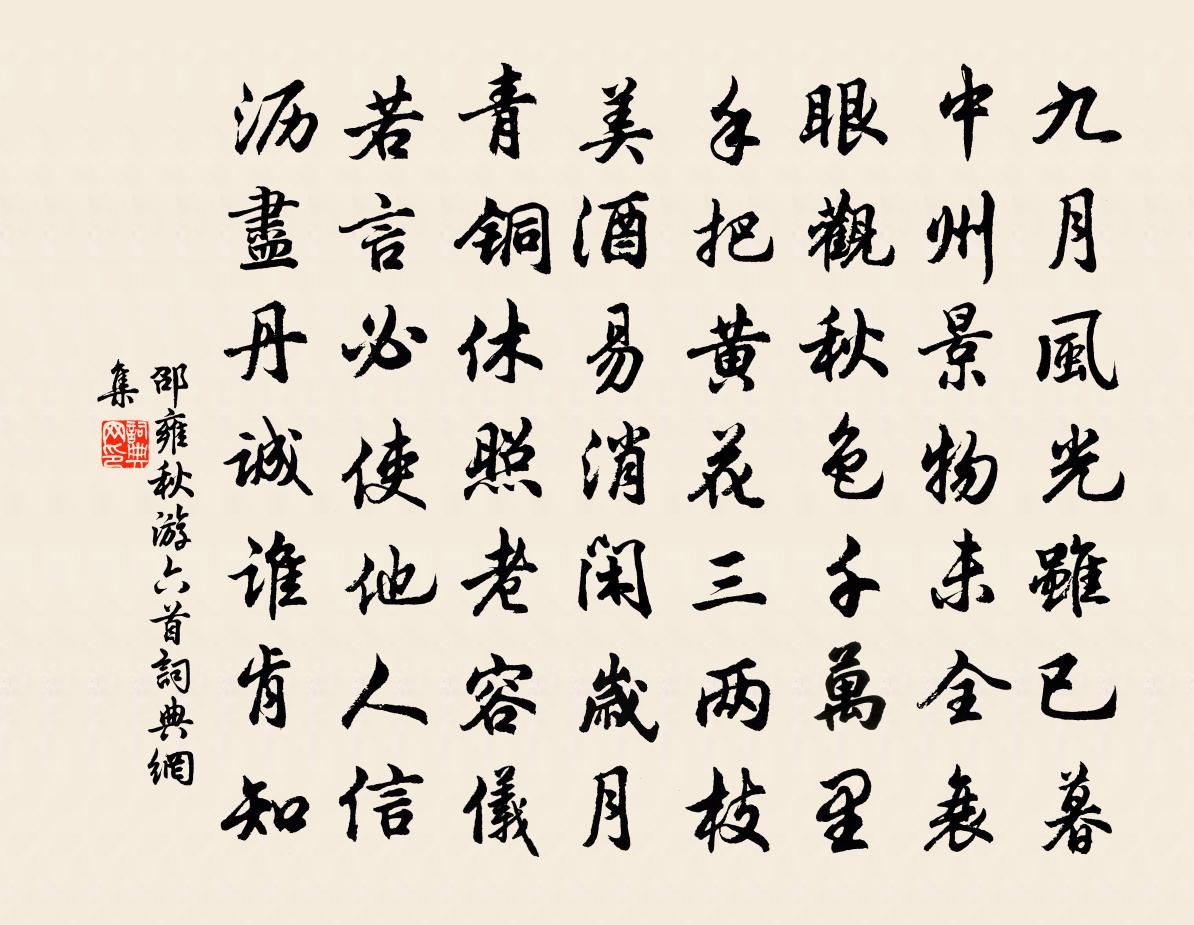 九月風光雖已暮
中州景物未全衰
眼觀秋色千萬里
手把黄花三两枝
美酒易消閑歲月
青銅休照老容儀
若言必使他人信
沥盡丹誠誰肯知
邵雍秋游六首詞典網
集
詞典
网印